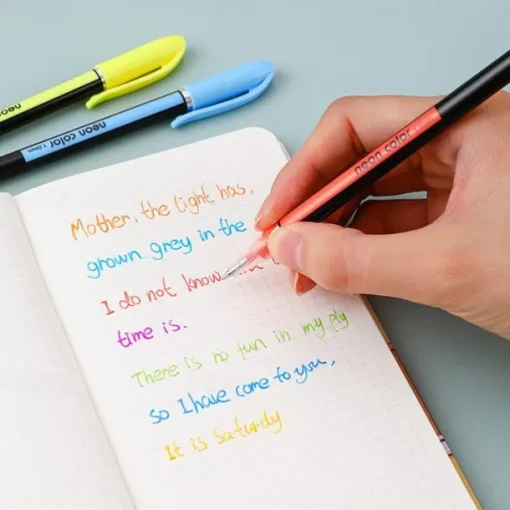 neon color
neon color 1.0mm
neon color
Mother. the light has.
grown grey in the
I do not know
time is.
There is no fun in my
so I have come to you,
It is saturdy